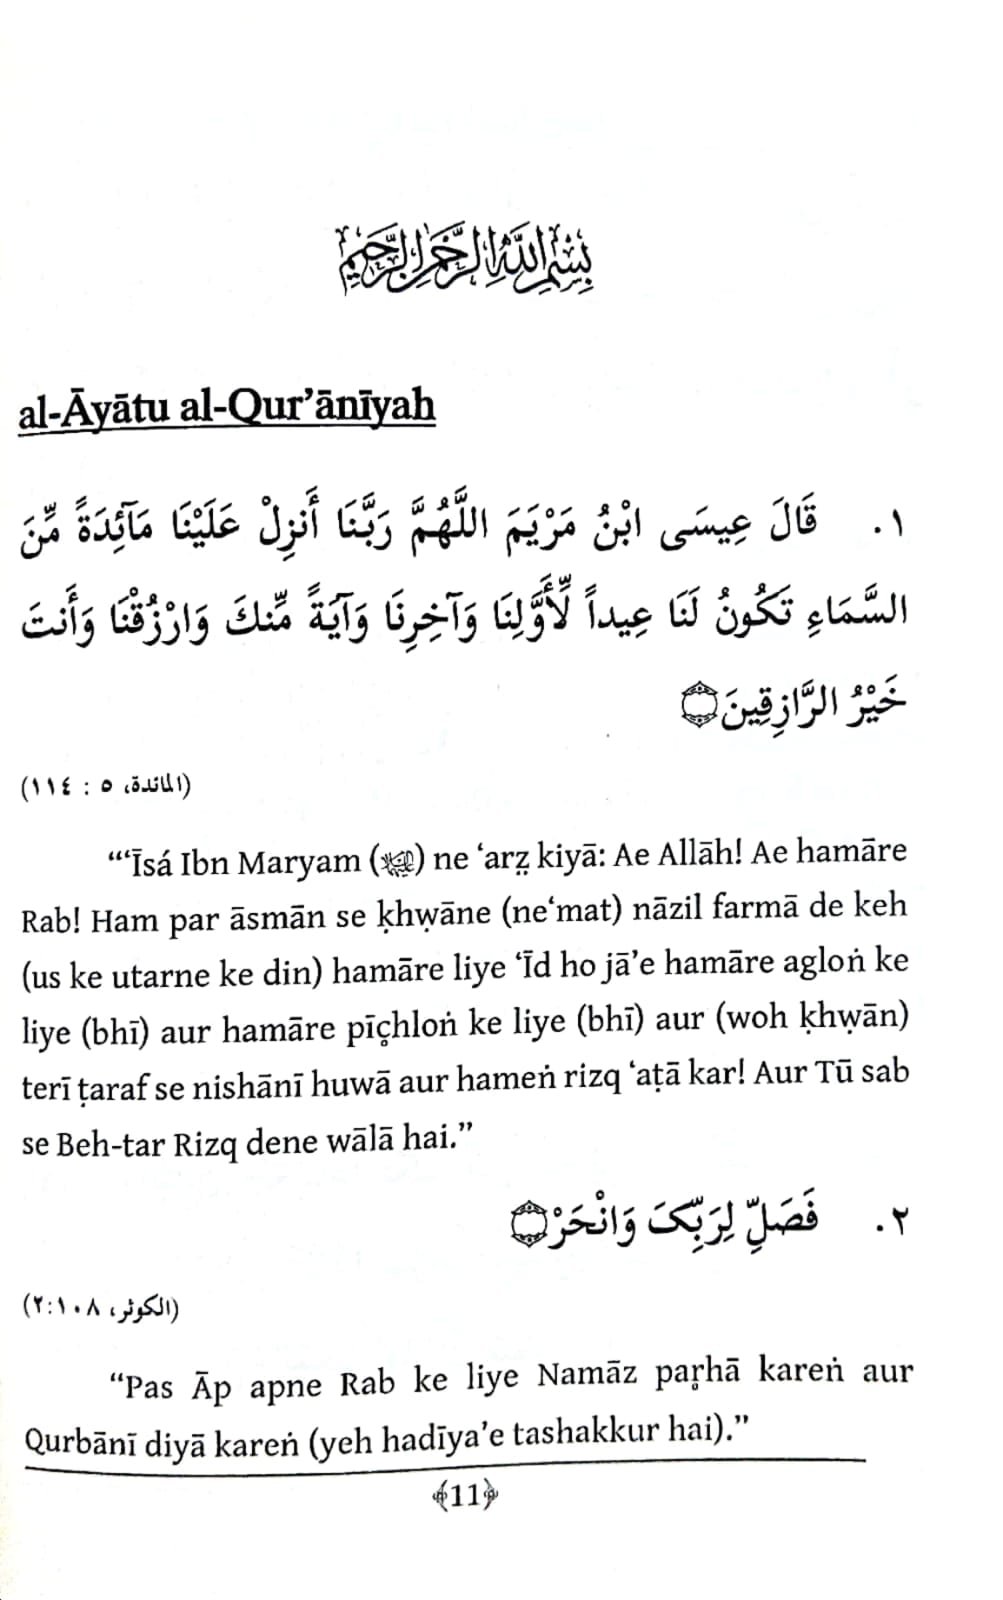 بِسْمِ اللَّهِ الرَّحْمَٰنِ الرَّحِيمِ
al-Āyātu al-Qur’ānīyah
١. قَالَ عِيسَى ابْنُ مَرْيَمَ اللَّهُمَّ رَبَّنَا أَنزِلْ عَلَيْنَا مَآئِدَةً مِّنَ
السَّمَاءِ تَكُونُ لَنَا عِيداً لِّأَوَّلِنَا وَآخِرِنَا وَآيَةً مِّنكَ وَارْزُقْنَا وَأَنتَ
خَيْرُ الرَّازِقِينَ۝
(المائدة، ٥ : ١١٤)
“‘Īsá Ibn Maryam () ne ‘arẓ kiyā: Ae Allāh! Ae hamāre
Rab! Ham par āsmān se ḳhẉāne (ne‘mat) nāzil farmā de keh
(us ke utarne ke din) hamāre liye ‘Īd ho jā’e hamāre agloṅ ke
liye (bhī) aur hamāre pīc̥hloṅ ke liye (bhī) aur (woh ḳhẉān)
terī ṭaraf se nishānī huwā aur hameṅ rizq ‘aṭā kar! Aur Tū sab
se Beh-tar Rizq dene wālā hai.”
٢. فَصَلِّ لِرَبِّكَ وَانْحَرْ۝
(الكوثر، ١٠٨:٢)
“Pas Āp apne Rab ke liye Namāz paṛhā kareṅ aur
Qurbānī diyā kareṅ (yeh hadīya’e tashakkur hai).”
﴾11﴿